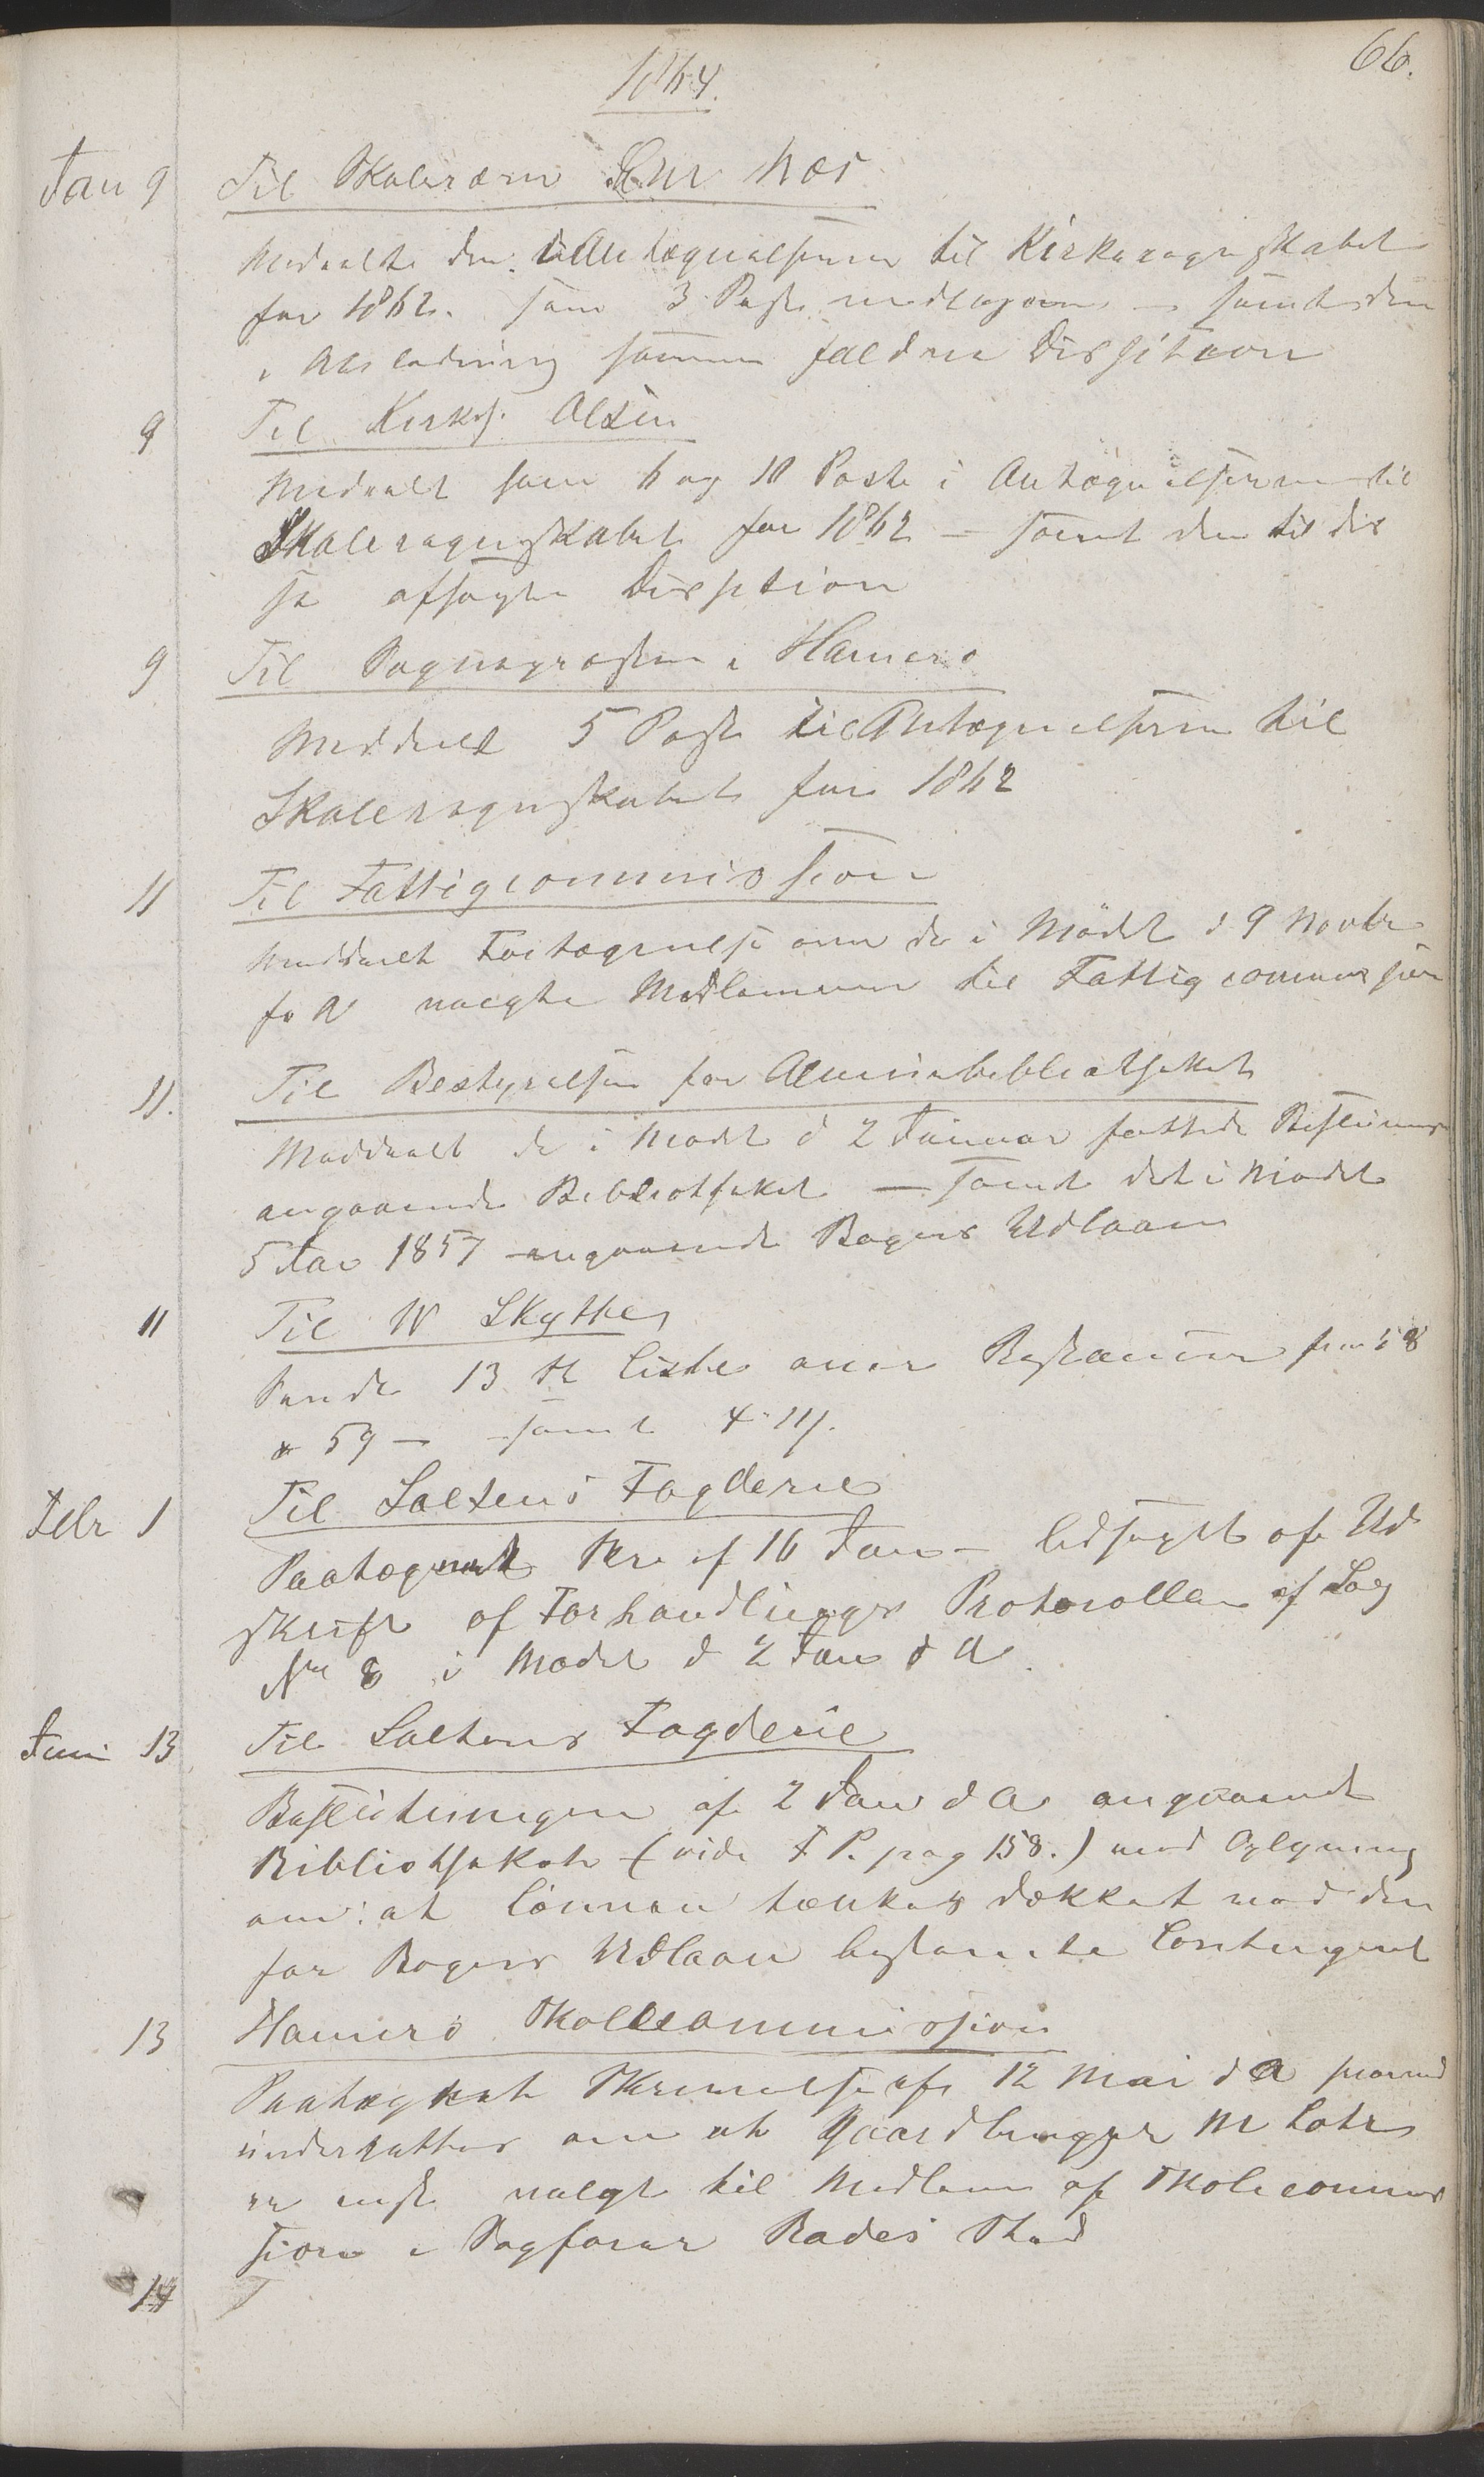 66.
1864.
Jan 9 Til Skolelærer Chr Næs
Meddeelte den i Antegnelserne til Kirkeregnskabet
for 1862. som 3 Post medtagne – samt den
i Anledning samme faldne Disition
9 Til Kirkes. Olsen
Meddeelt som 6 og 10 Poste i Antegnelserne til
Skoleregnskabet for 1862 – samt den til dis
se afsagte Disition
9 Til Sognepræsten i Hamerø
Meddeelt 5 Post til Antegnelserne til
Skoleregnskabet for 1862
11 Til Fattigcommission
Meddeelt Fortegnelse over de i Mødet d 9 Novbr
f A valgte Medlemmer til Fattigcommission
11. Til Bestyrelsen for Almuebibliotheket
Meddeelt de i Mødet d 2 Januar fattede Beslutning
angaaende Bibliotheket – samt det i Mødet
5 Jan 1857 angaaende Bøgers Udlaan
11 Til W Skytte
Sendt 13 st Liste over Restancer for 58
& 59 – samt 4" 111.
Febr 1 Til Saltens Fogderie
Paategnet Skr af 16 Jan – ledsaget af Ud
skrift af Forhandlings Protocollen af Sag
No 8 i Mødet d 2 Jan d A.
Juni 13 Til Saltens Fogderie
Beslutningen af 2 Jan d A angaaende
Bibliotheket (vide F P. pag 158.) med Oplysning
om: at Lønnen tænkes dækket ved den
for Bøgers Udlaan bestemte Contingent
13 Hamerø Skolecommission
Paategnet Skrivelse af 12 Mai d A hvorved
underrettes om at Gaardbruger M Lotr
er nyst valgt til Medlem af Skolecommis
sion i Sagfører Rodes Sted
14 T